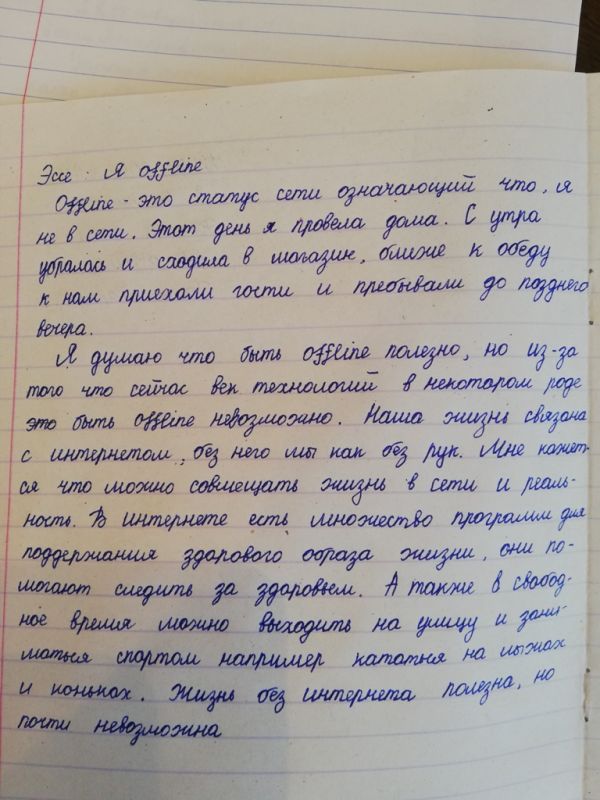 Эссе: Я offline
Offline - это статус сети означающий что, я
не в сети. Этот день я провела дома. С утра
убралась и сходила в магазин, ближе к обеду
к нам приехали гости и пребывали до позднего
вечера.
Я думаю что быть offline полезно, но из-за
того что сейчас век технологий в некотором роде
это быть offline невозможно. Наша жизнь связана
с интернетом, без него мы как без рук. Мне кажет-
ся что можно совмещать жизнь в сети и реаль-
ность. В интернете есть множество программ для
поддержания здорового образа жизни, они по-
могают следить за здоровьем. А также в свобод-
ное время можно выходить на улицу и зани-
маться спортом например кататься на лыжах
и коньках. Жизнь без интернета полезна, но
почти невозможна